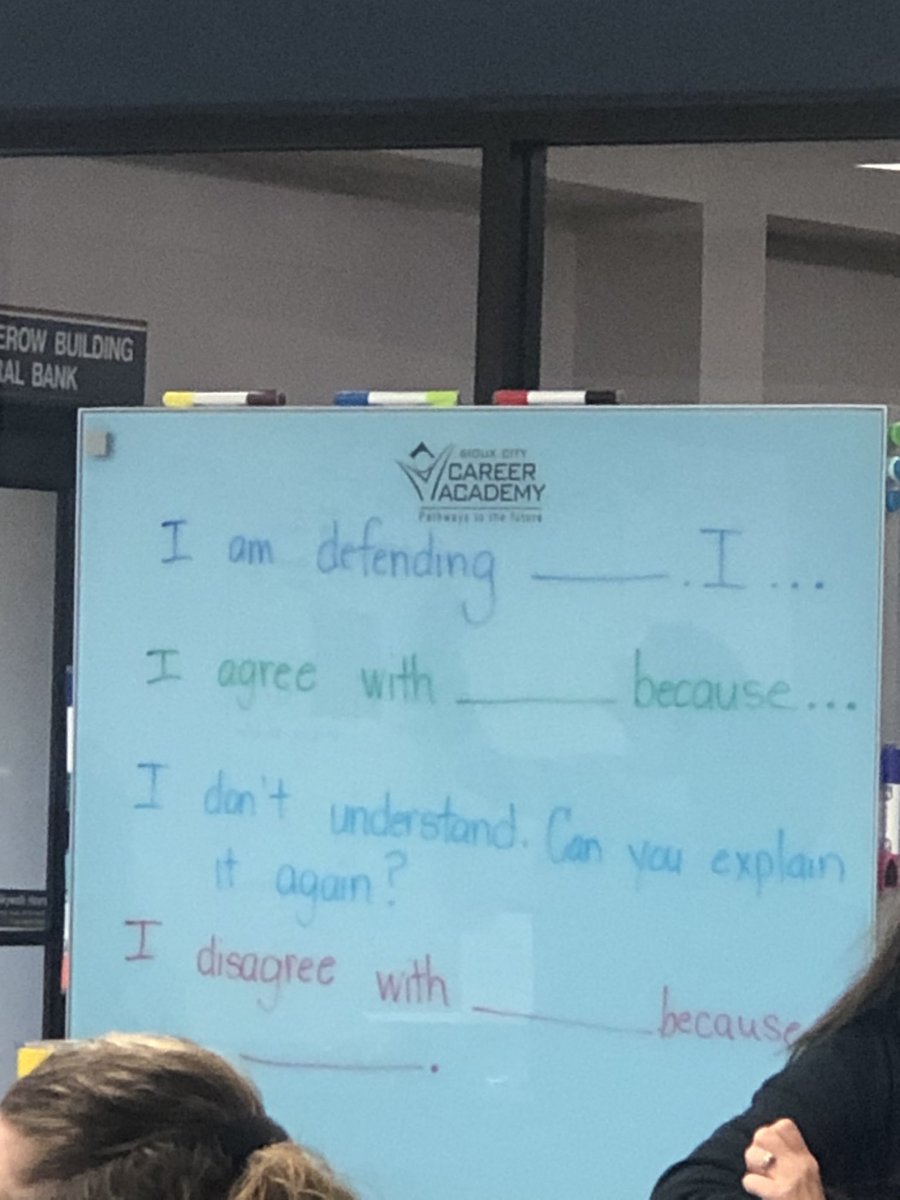 EROW BUILDING
RAL BANK
SIOUX CITY
CAREER
ACADEMY
Pathways to the future
I am defending _____. I...
I agree with _____ because...
I don't understand. Can you explain
it again?
I disagree with _____ because
_____.